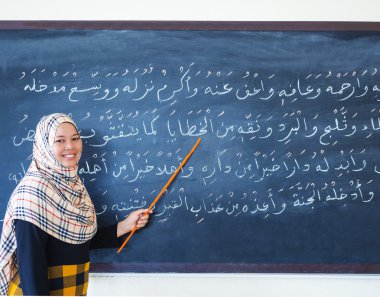 وَارْحَمْهُ وَعَافِهِ وَاعْفُ عَنْهُ وَأَكْرِمْ نُزُلَهُ وَوَسِّعْ مَدْخَلَهُ
وَثَلْجٍ وَالْبَرَدِ وَنَقِّهِ مِنَ الْخَطَايَا كَمَا يُنَقَّى
وَأَبْدِلْهُ دَارًا خَيْرًا مِنْ دَارِهِ وَأَهْلًا خَيْرًا مِنْ أَهْلِهِ
وَأَدْخِلْهُ الْجَنَّةَ وَأَعِذْهُ مِنْ عَذَابِ الْقَبْرِ وَفِتْنَتِهِ